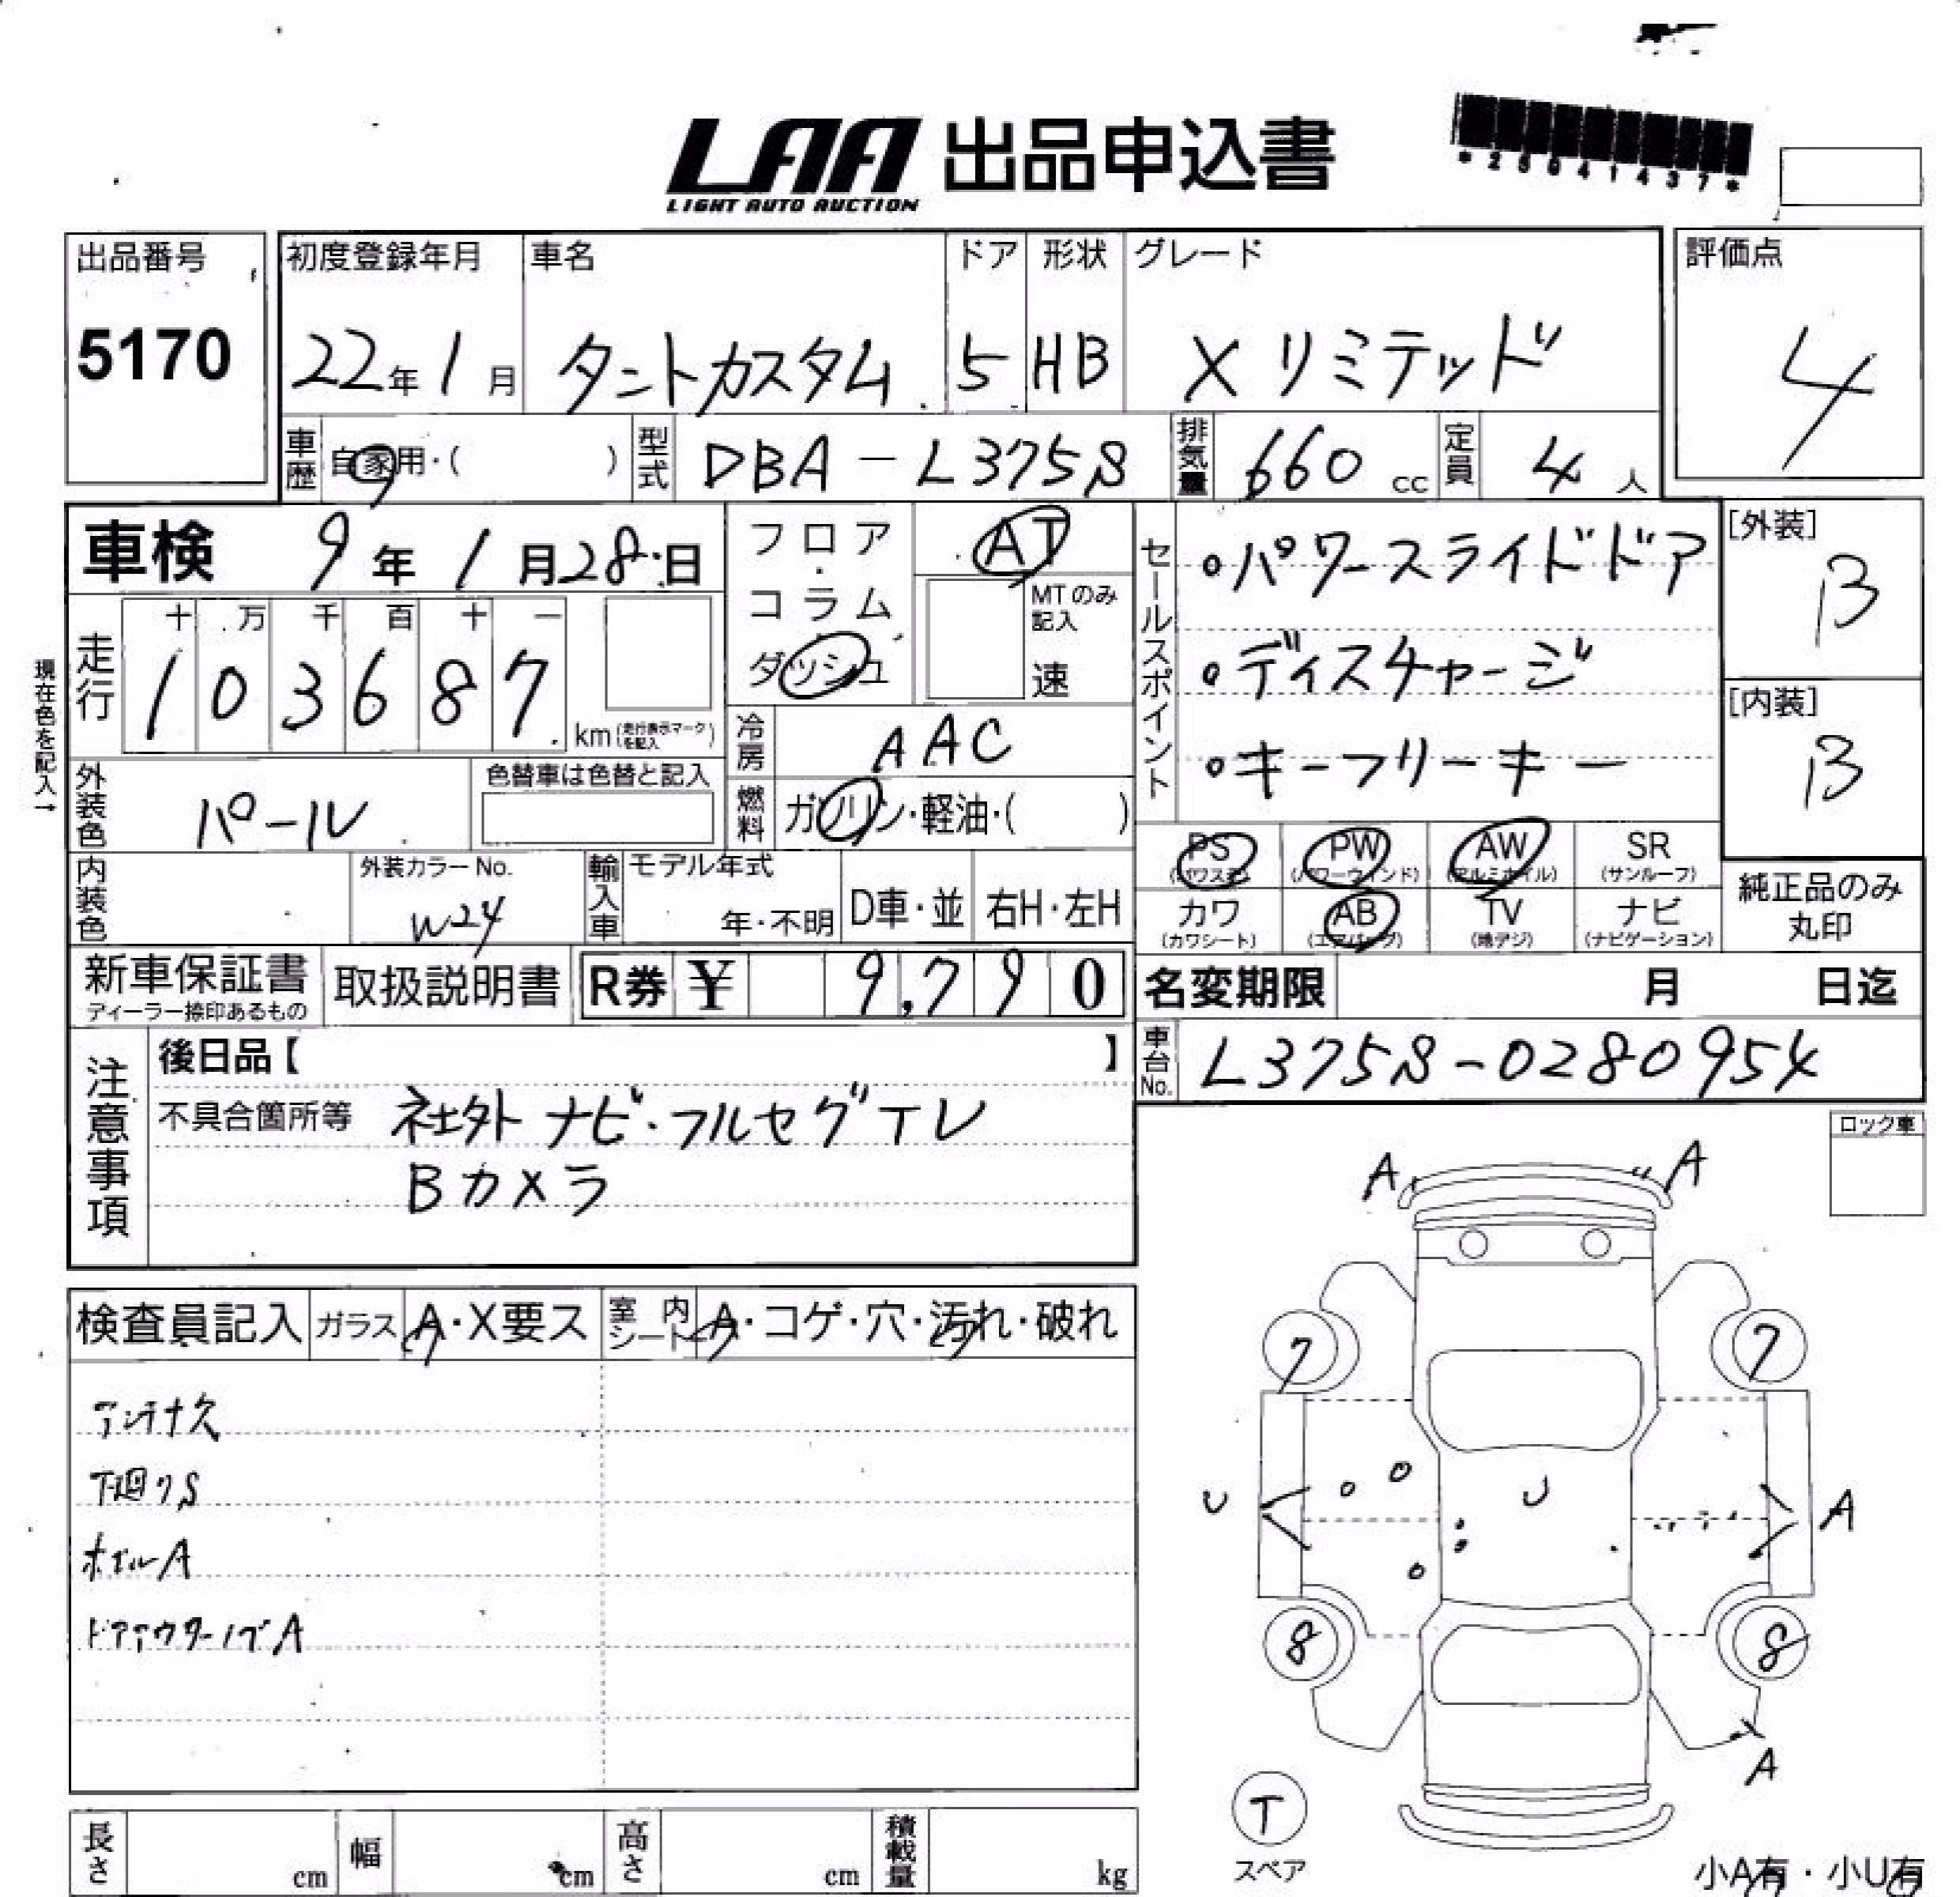 LAA 出品申込書
LIGHT AUTO AUCTION
*25041437*
出品番号
5170
初度登録年月
22年1月
車名
タントカスタム
ドア
5
形状
HB
グレード
Xリミテッド
評価点
4
車歴
自家用・( )
型式
DBA-L375S
排気量
660cc
定員
4人
車検 9年1月28日
フロア・コラム・ダッシュ
AT
MTのみ記入
速
セールスポイント
・パワースライドドア
・ディスチャージ
・キーフリーキー
[外装]
B
[内装]
B
現在色を記入→
走行
十 万 千 百 十 一
1 0 3 6 8 7
km(走行表示マークを記入)
冷房
AAC
外装色
パール
色替車は色替と記入
燃料
ガソリン・軽油・( )
PS AW PW SR
(パワステ) (パワーウィンド) (アルミホイル) (サンルーフ)
カワ AB TV ナビ
(カワシート) (エアバッグ) (地デジ) (ナビゲーション)
純正品のみ
丸印
内装色
外装カラーNo.
W24
輸入車
モデル年式
年・不明
D車・並
右H・左H
新車保証書
ディーラー捺印あるもの
取扱説明書
R券 ¥ 9,790
名変期限 月 日迄
車台No.
L375S-0280954
注意事項
後日品【 】
不具合箇所等 社外ナビ・フルセグTV
Bカメラ
ロック車
検査員記入
ガラス A・X要ス
室内シート A・コゲ・穴・汚れ・破れ
アンテナ欠
下廻りS
ホイルA
ドアアウターノブA
A A
7 7
U U A
8 8
A
T
スペア
小A有・小U有
長さ cm
幅 cm
高さ cm
積載量 kg